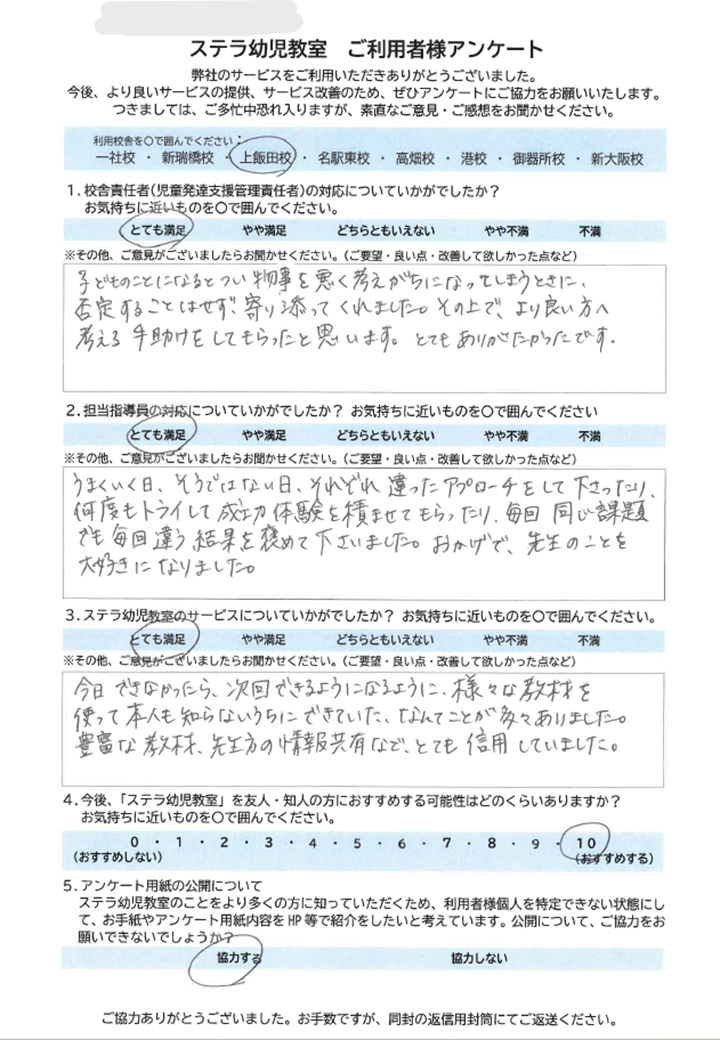 ステラ幼児教室　ご利用者様アンケート
弊社のサービスをご利用いただきありがとうございました。
今後、より良いサービスの提供、サービス改善のため、ぜひアンケートにご協力をお願いいたします。
つきましては、ご多忙中恐れ入りますが、素直なご意見・ご感想をお聞かせください。
利用校舎を〇で囲んでください：
一社校 ・ 新瑞橋校 ・ 上飯田校 ・ 名駅東校 ・ 高畑校 ・ 港校 ・ 御器所校 ・ 新大阪校
1．校舎責任者(児童発達支援管理責任者)の対応についていかがでしたか？
お気持ちに近いものを〇で囲んでください。
とても満足 やや満足 どちらともいえない やや不満 不満
※その他、ご意見がございましたらお聞かせください。（ご要望・良い点・改善して欲しかった点など）
子どものことになるとつい物事を悪く考えがちになってしまうときに、
否定することはせず、寄り添ってくれました。その上で、より良い方へ
考える手助けをしてもらったと思います。とてもありがたかったです。
2．担当指導員の対応についていかがでしたか？ お気持ちに近いものを〇で囲んでください
とても満足 やや満足 どちらともいえない やや不満 不満
※その他、ご意見がございましたらお聞かせください。（ご要望・良い点・改善して欲しかった点など）
うまくいく日、そうではない日、それぞれ違ったアプローチをして下さったり、
何度もトライして成功体験を積ませてもらったり、毎回同じ課題
でも毎回違う結果を褒めて下さいました。おかげで、先生のことを
大好きになりました。
3．ステラ幼児教室のサービスについていかがでしたか？ お気持ちに近いものを〇で囲んでください。
とても満足 やや満足 どちらともいえない やや不満 不満
※その他、ご意見がございましたらお聞かせください。（ご要望・良い点・改善して欲しかった点など）
今日できなかったら、次回できるようになるように、様々な教材を
使って本人も知らないうちにできていた、なんてことが多々ありました。
豊富な教材、先生方の情報共有などで、とても信用していました。
4．今後、「ステラ幼児教室」を友人・知人の方におすすめする可能性はどのくらいありますか？
お気持ちに近いものを〇で囲んでください。
0 ・ 1 ・ 2 ・ 3 ・ 4 ・ 5 ・ 6 ・ 7 ・ 8 ・ 9 ・ 10
（おすすめしない） （おすすめする）
5．アンケート用紙の公開について
ステラ幼児教室のことをより多くの方に知っていただくため、利用者様個人を特定できない状態にし
て、お手紙やアンケート用紙内容をHP等で紹介をしたいと考えています。公開について、ご協力をお
願いできないでしょうか？
協力する 協力しない
ご協力ありがとうございました。お手数ですが、同封の返信用封筒にてご返送ください。